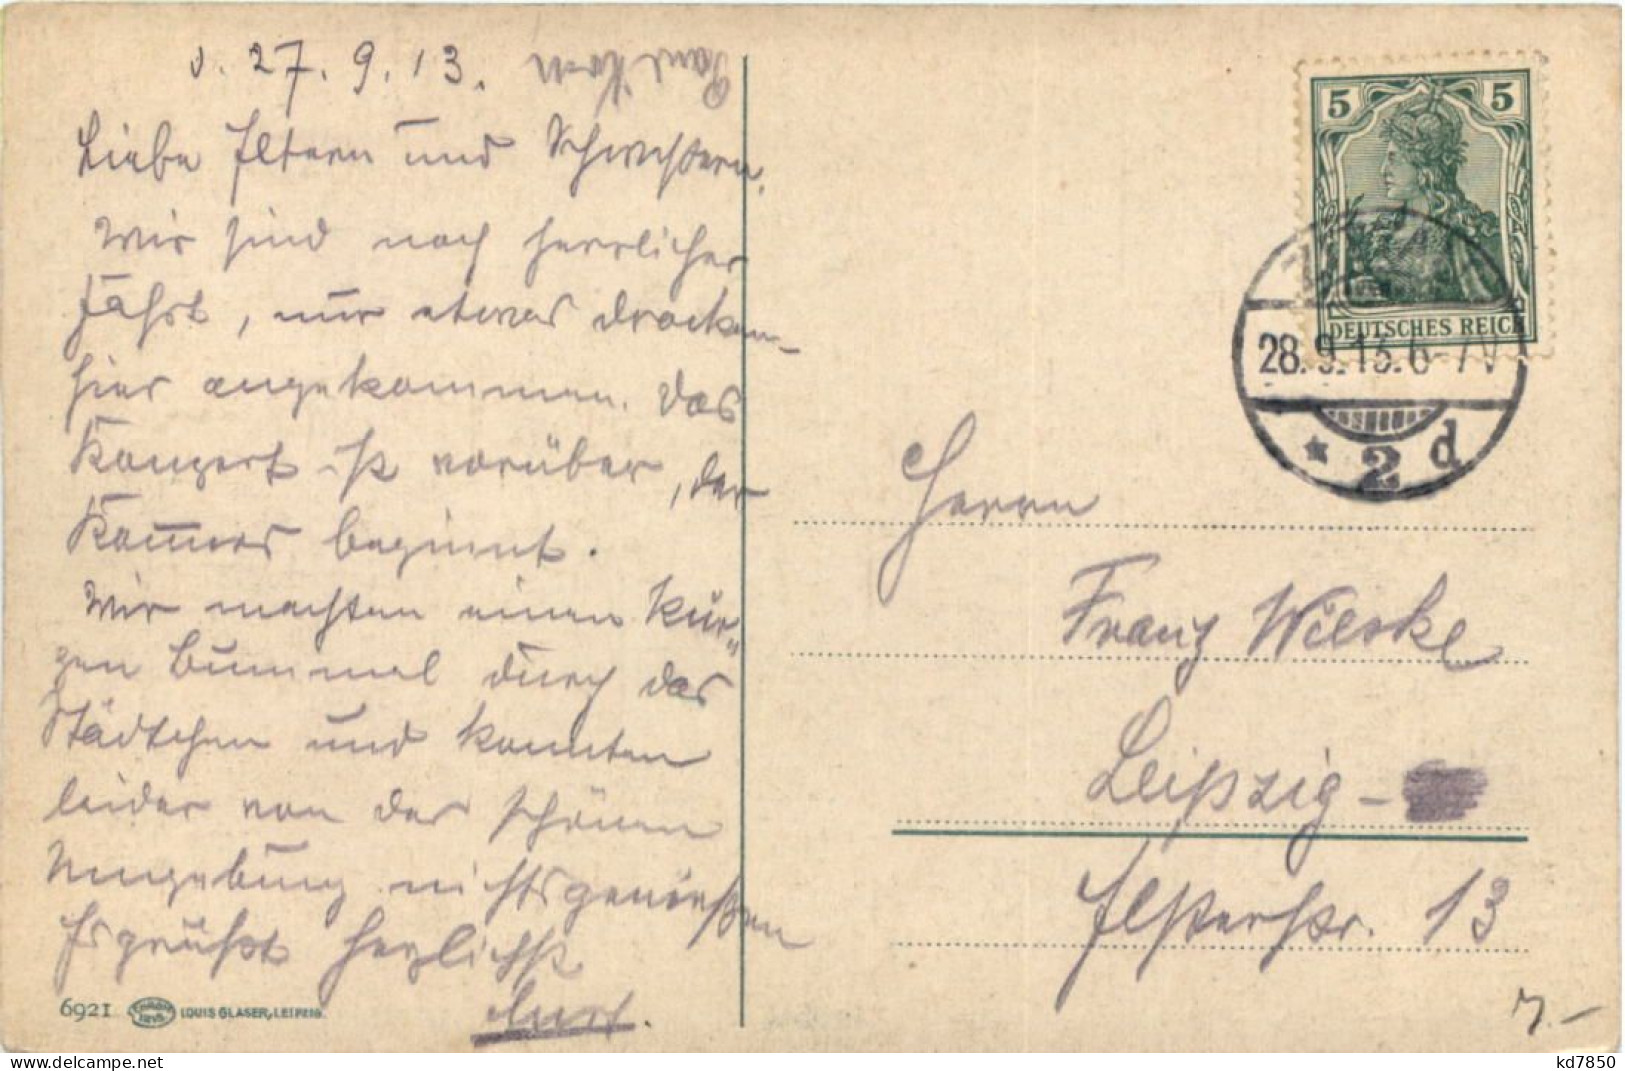 d. 27.9.13.
Paul
Liebe Eltern und Schwestern.
Wir sind nach herrlicher
Fahrt, nur etwas drocken
hier angekommen. Das
Konzert ist vorüber, der
Kommers beginnt.
Wir machten einen kur„
zen Bummel durch das
Städtchen und konnten
leider von der schönen
Umgebung nichts genießen
Es grüßt herzlichst
Curt.
6921 LOUIS GLASER, LEIPZIG
5 5
DEUTSCHES REICH
28.9.13. 6-7V
* 2 d
Herrn
Franz Wieske
Leipzig-
Elsterstr. 13
7.-
delcampe.net
kd7850